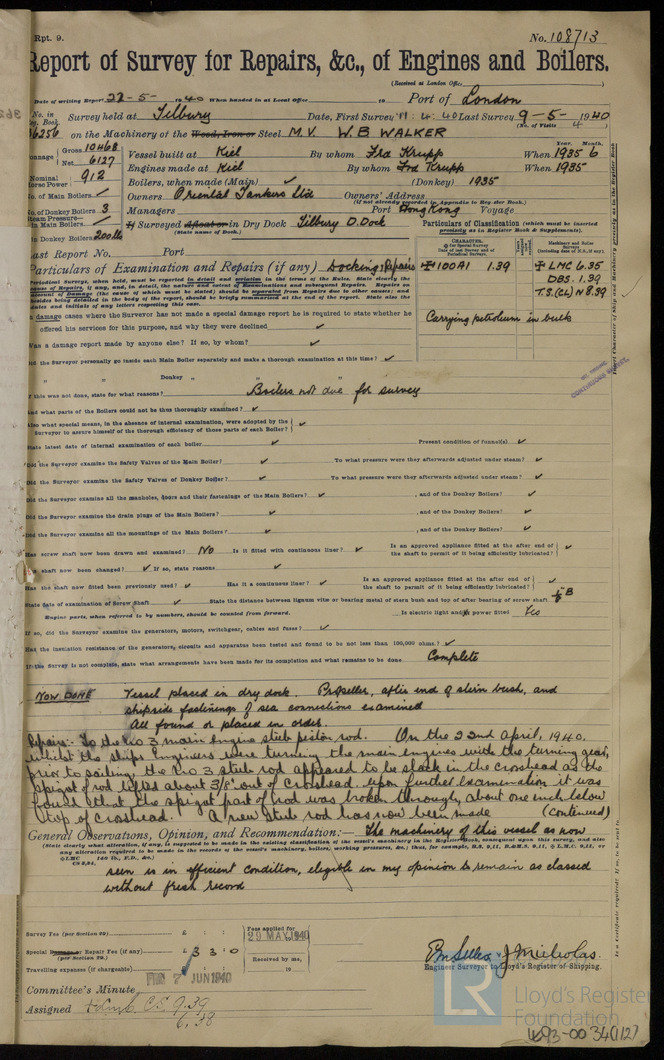 Rpt. 9.
No. 108713
Report of Survey for Repairs, &c., of Engines and Boilers.
(Received at London Office
Date of writing Report 22-5-1940 When handed in at Local Office 19 Port of London
No. in Reg. Book Survey held at Tilbury Date, First Survey 11:4:40 Last Survey 9-5-1940
(No. of Visits 4)
on the Machinery of the Wood, Iron or Steel M.V. W.B WALKER
Gross 10468
Net 6127
Vessel built at Kiel By whom Frd Krupp When 1935 6
Year. Month.
Nominal Horse Power 912
Engines made at Kiel By whom Frd Krupp When 1935
No. of Main Boilers Boilers, when made (Main) ✓ (Donkey) 1935
No. of Donkey Boilers 3 Owners Oriental Tankers Ltd Owners' Address
(if not already recorded in Appendix to Register Book.)
Steam Pressure—
in Main Boilers Managers Port Hong Kong Voyage
in Donkey Boilers 200 lb If Surveyed Afloat or in Dry Dock Tilbury D. Dock
(State name of Dock.)
Particulars of Classification (which must be inserted precisely as in Register Book & Supplements).
Last Report No. Port
Particulars of Examination and Repairs (if any) Docking: Repairs
✠100A1 1.39
✠ LMC 6.35
DBS. 1.39
T.S.(CL) N 8.39
Carrying petroleum in bulk
In damage cases where the Surveyor has not made a special damage report he is required to state whether he
offered his services for this purpose, and why they were declined ✓
Was a damage report made by anyone else? If so, by whom? ✓
Did the Surveyor personally go inside each Main Boiler separately and make a thorough examination at this time? ✓
" " Donkey " " "
If this was not done, state for what reasons? Boilers not due for survey
CONTINUOUS SURVEY.
And what parts of the Boilers could not be thus thoroughly examined? ✓
Also what special means, in the absence of internal examination, were adopted by the
Surveyor to assure himself of the thorough efficiency of those parts of each Boiler? ✓
State latest date of internal examination of each boiler ✓ Present condition of funnel(s) ✓
Did the Surveyor examine the Safety Valves of the Main Boiler? ✓ To what pressure were they afterwards adjusted under steam? ✓
Did the Surveyor examine the Safety Valves of Donkey Boiler? ✓ To what pressure were they afterwards adjusted under steam? ✓
Did the Surveyor examine all the manholes, doors and their fastenings of the Main Boilers? ✓, and of the Donkey Boilers? ✓
Did the Surveyor examine the drain plugs of the Main Boilers? ✓, and of the Donkey Boilers? ✓
Did the Surveyor examine all the mountings of the Main Boilers? ✓, and of the Donkey Boilers? ✓
Has screw shaft now been drawn and examined? No Is it fitted with continuous liner? ✓ Is an approved appliance fitted at the after end of
the shaft to permit of it being efficiently lubricated? ✓
Has shaft now been changed? ✓ If so, state reasons ✓
Has the shaft now fitted been previously used? ✓ Has it a continuous liner? ✓ Is an approved appliance fitted at the after end of
the shaft to permit of it being efficiently lubricated? ✓
State date of examination of Screw Shaft ✓ State the distance between lignum vitæ or bearing metal of stern bush and top of after bearing of screw shaft
Engine parts, when referred to by numbers, should be counted from forward. Is electric light and/or power fitted Yes
If so, did the Surveyor examine the generators, motors, switchgear, cables and fuses? ✓
Has the insulation resistance of the generators, circuits and apparatus been tested and found to be not less than 100,000 ohms? ✓
If the Survey is not complete, state what arrangements have been made for its completion and what remains to be done Complete
NOW DONE Vessel placed in dry dock. Propeller, after end of stern bush, and
shipside fastenings of sea connections examined
All found or placed in order.
Repairs:- To the No 3 main engine stub piston rod. On the 22nd April, 1940,
whilst the ships engineers were turning the main engines with the turning gear,
prior to sailing, the No 3 stub rod appeared to be slack in the crosshead as the
spigot of rod lifted about 3/8" out of crosshead. Upon further Examination it was
found that the spigot part of rod was broken through, about one inch below
top of crosshead. A new stub rod has now been made (Continued)
General Observations, Opinion, and Recommendation:— The machinery of this vessel as now
seen is in efficient condition, eligible in my opinion to remain as classed
without fresh record
Survey Fee (per Section 29) £ : :
Special Damage or Repair Fee (if any) £ 3 3 0
(per Section 29.)
Travelling expenses (if chargeable) £ : :
Fees applied for
29 MAY 1940
Received by me,
19
J Nicholas.
Engineer Surveyor to Lloyd's Register of Shipping.
Committee's Minute FRI 7 JUN 1940
Assigned
LR
Lloyd's Register
Foundation
W93-0034(1/2)